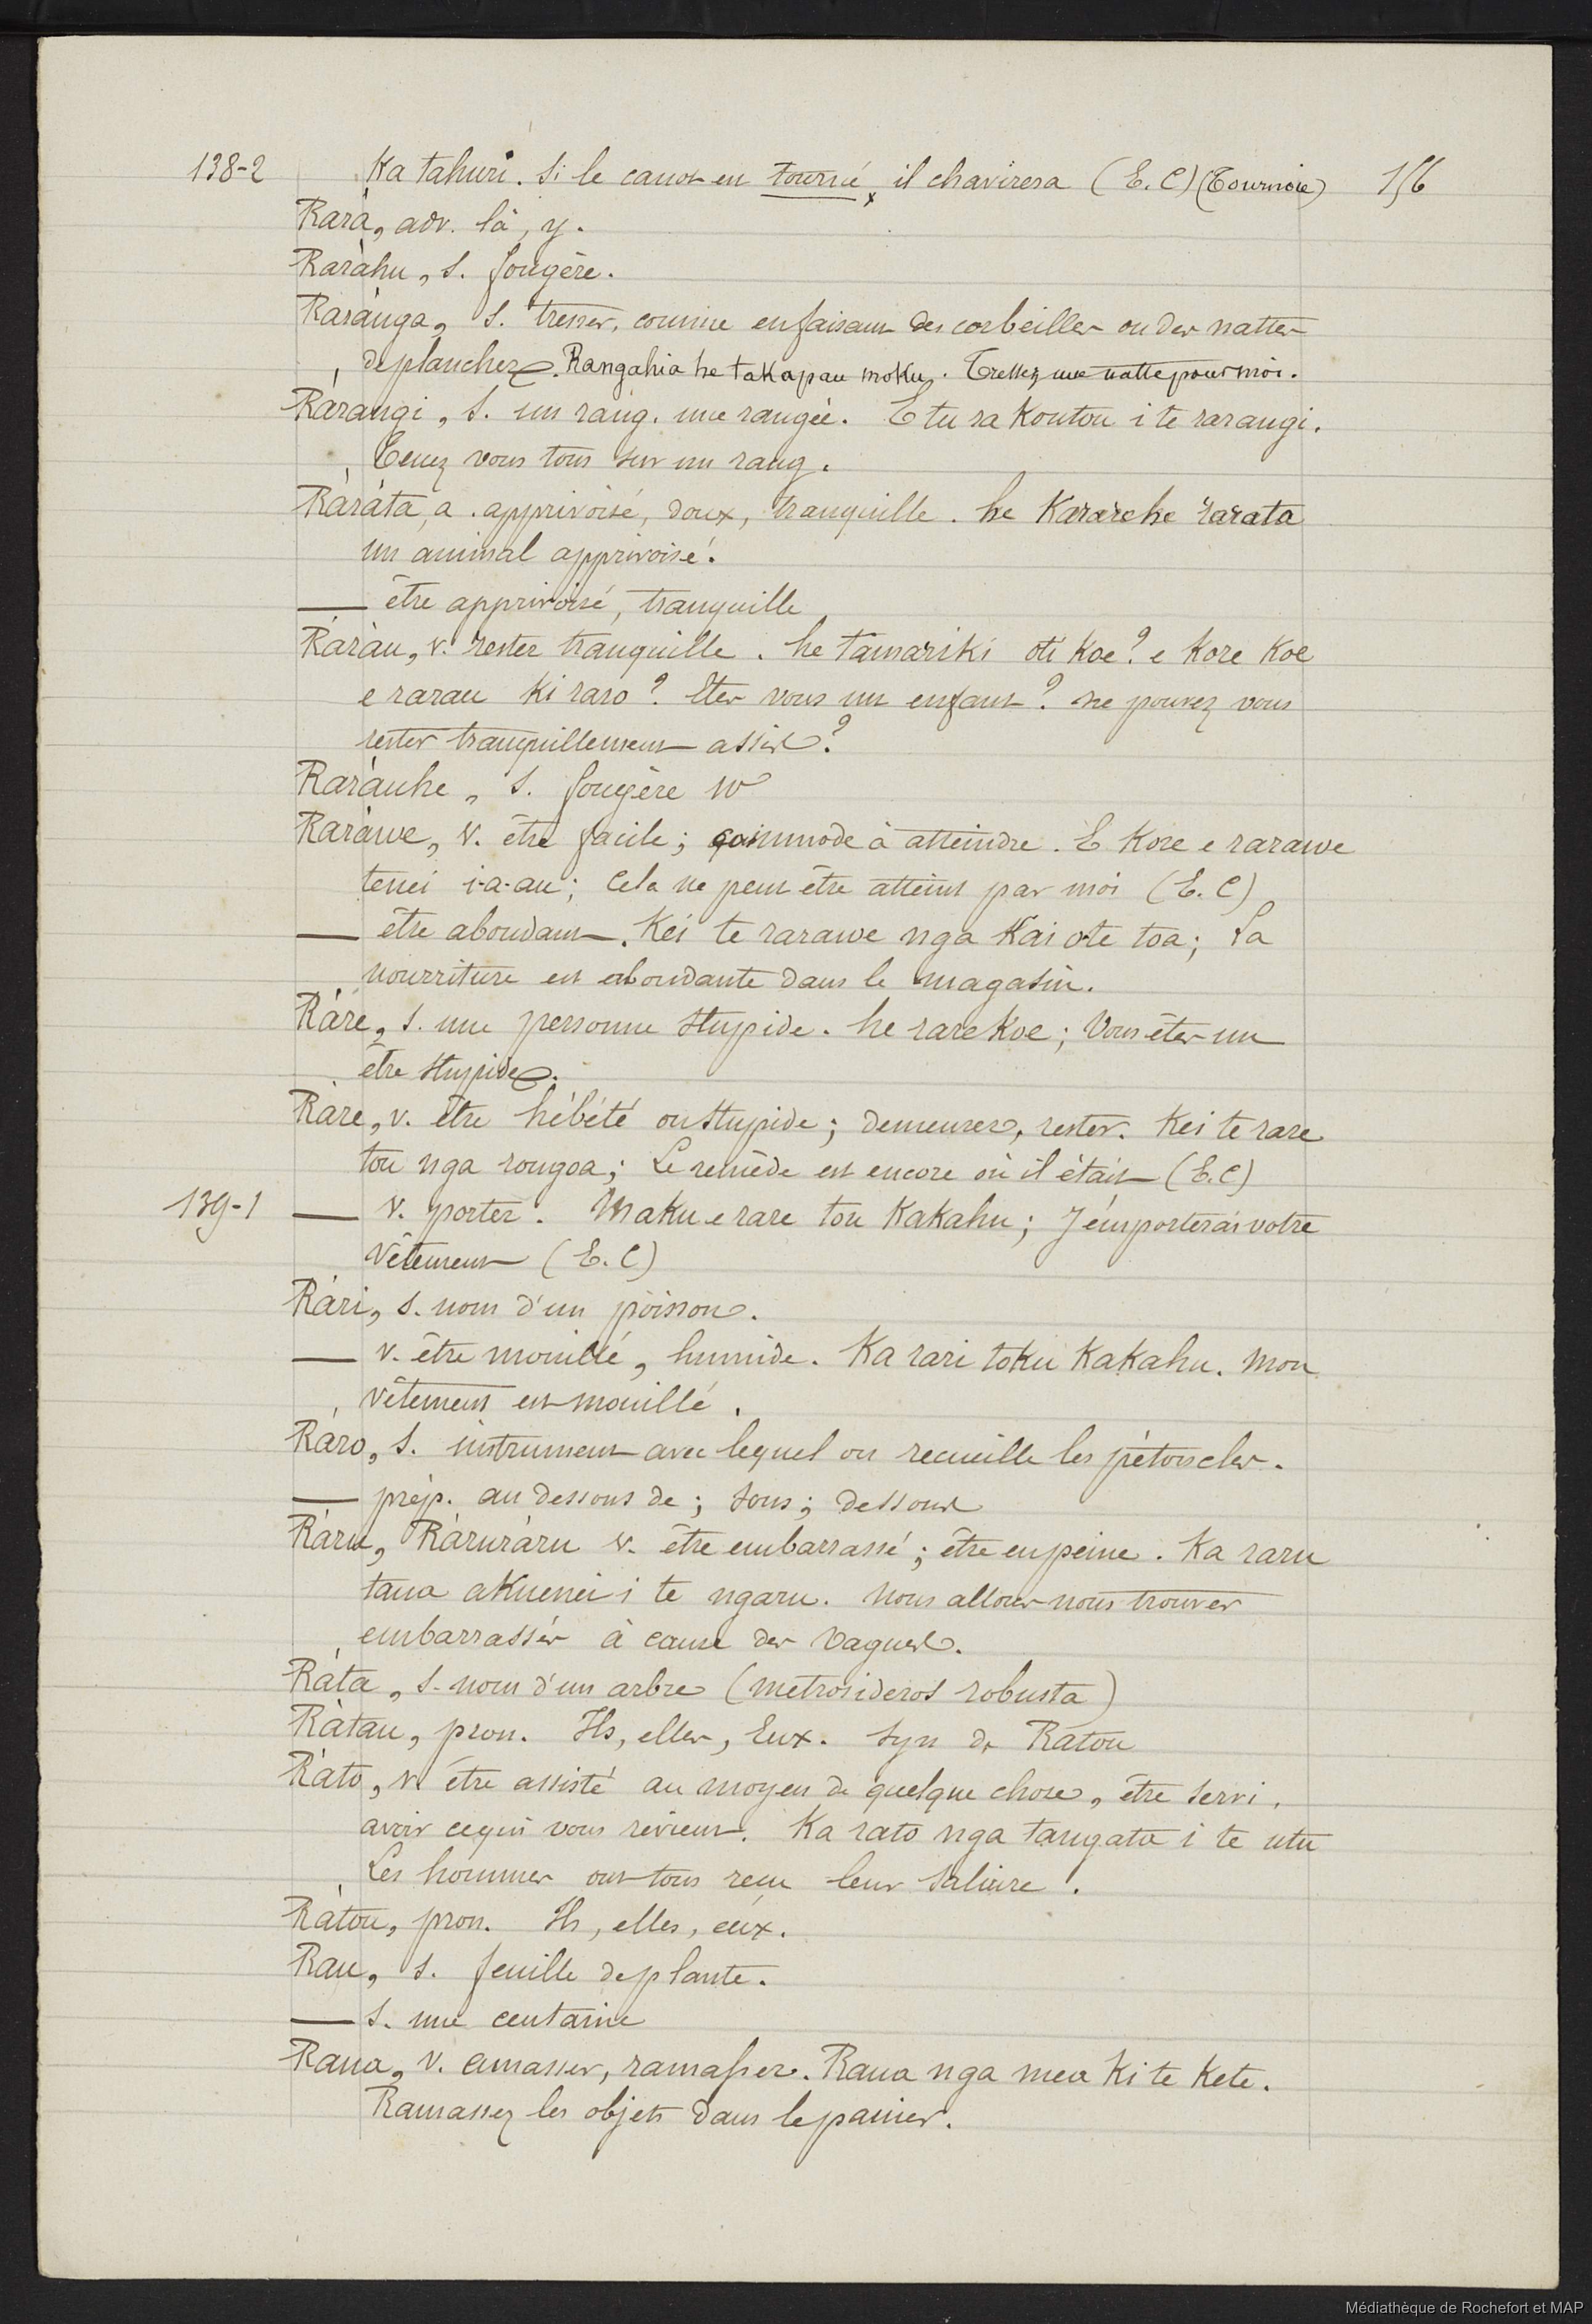 138-2 Ka tahuri. Si le canot est tourné x il chavirera (E. C) (Tournoie) 156
Rarà, adv. là, y.
Raràhu, s. fougère.
Raránga, s. tresser, comme en faisant des corbeilles ou des natters
de plancher. Rangahia he takapau moku. Tressez une natte pour moi.
Rárangi, s. un rang. une rangée. E tu ra koutou i te rarangi.
Tenez vous tous sur un rang.
Ràráta, a. apprivoisé, doux, tranquille. he Kararehe rarata
un animal apprivoisé.
— être apprivoisé, tranquille
Ràràu, v. rester tranquille. he tamariki oti koe? e kore koe
e rarau ki raro? Etes vous un enfant? ne pouvez vous
rester tranquillement assis?
Raràuhe, s. fougère W
Raràwe, v. être facile; commode à atteindre. E kore e rarawe
tenei i-a-au; Cela ne peut être atteint par moi (E. C)
— être abondant. Kei te rarawe nga kai o te toa; La
nourriture est abondante dans le magasin.
Ràre, s. une personne stupide. he rare koe; Vous êtes un
être stupide.
Ràre, v. être hébété ou stupide; demeurer, rester. Kei te rare
tou nga rongoa; Le remède est encore où il était (E. C)
139-1 — v. porter. Maku e rare tou kakahu; J'emporterai votre
vêtement (E. C)
Ràri, s. nom d'un poisson.
— v. être mouillé, humide. Ka rari toku kakahu. mon
vêtement est mouillé.
Ràro, s. instrument avec lequel on recueille les pétoncles.
— prép. au dessous de; sous; dessous
Ràru, Ràruràru v. être embarrassé; être en peine. Ka raru
taua akuenei i te ngaru. Nous allons nous trouver
embarrassés à cause des vagues.
Ràta, s. nom d'un arbre (metrosideros robusta)
Ràtau, pron. Ils, elles, Eux. Syn de Ratou
Ràto, v. être assisté au moyen de quelque chose, être servi,
avoir ce qui vous revient. Ka rato nga tangata i te utu
Les hommes ont tous reçu leur salaire.
Ràtou, pron. Ils, elles, eux.
Rau, s. feuille de plante.
— s. une centaine
Raua, v. amasser, ramasser. Raua nga mea ki te kete.
Ramassez les objets dans le panier.
Médiathèque de Rochefort et MAP